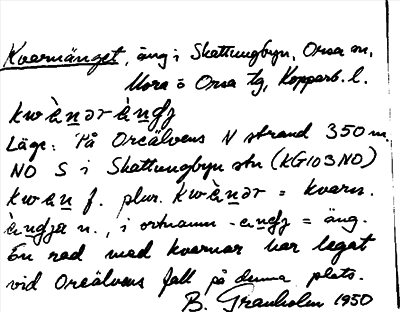 Kvarnänget, äng i Skattungbyn, Orsa sn,
Mora o Orsa tg, Kopparb. l.
kwὲnər ὲŋgʒ
Läge: På Oreälvens N strand 350 m.
NO S i Skattungbyn stn (KG103 NO)
kwεn f. plur. kwὲnər = kvarn.
n., i ortnamn = äng.
En rad med kvarnar har legat
vid Oreälvens fall på denna plats.
B. Granholm 1950